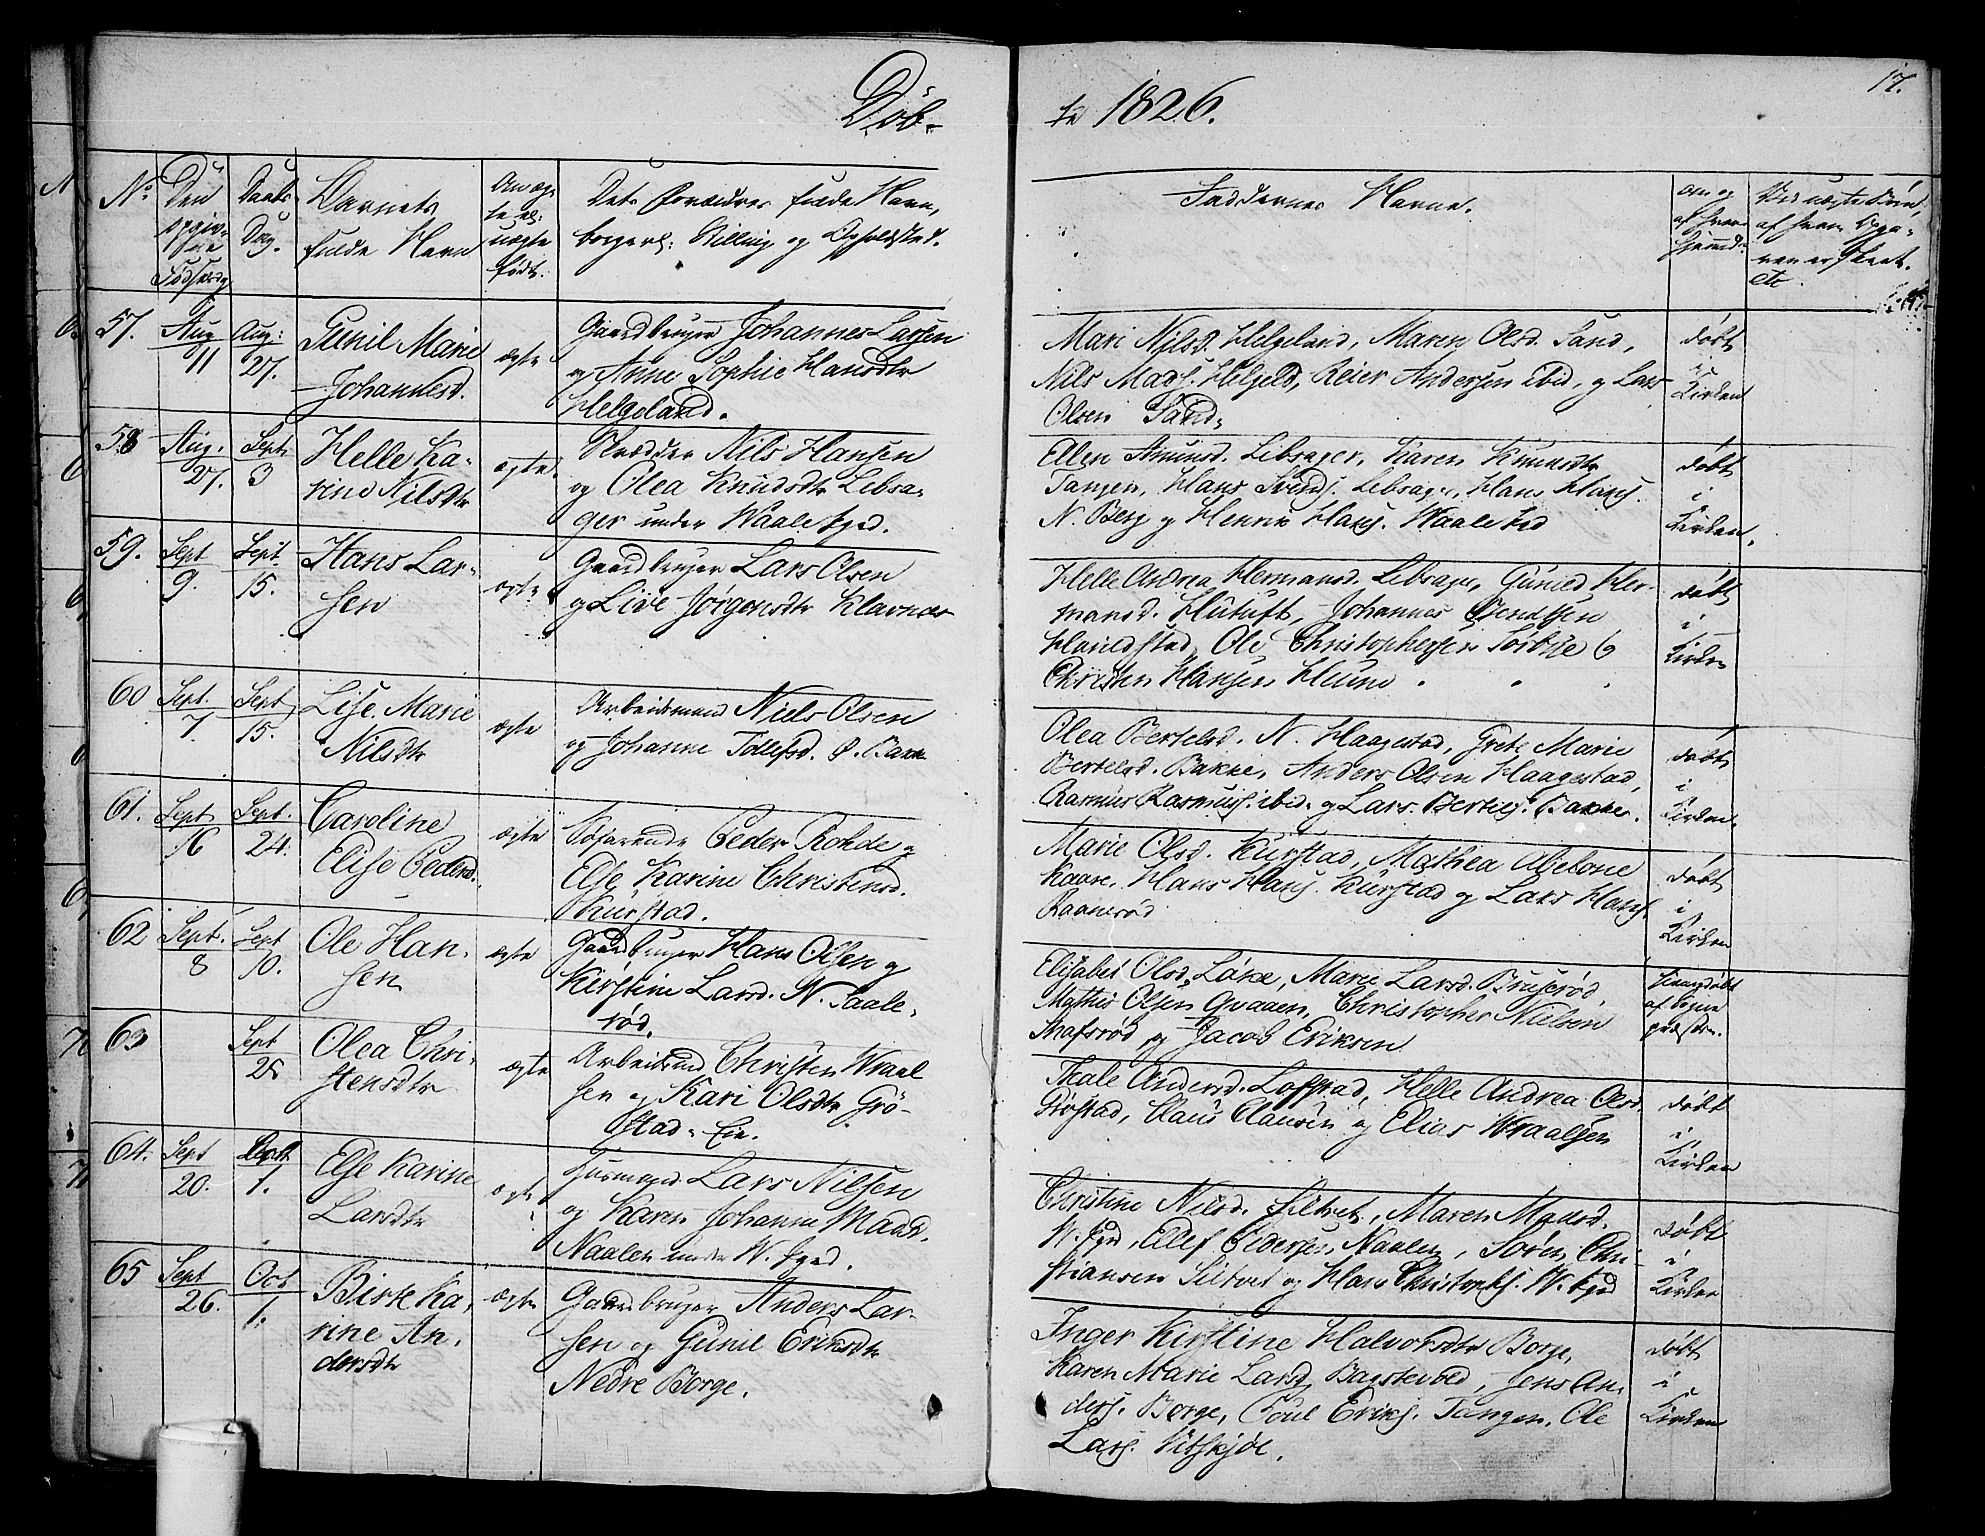 Døb-
te 1826.
17.
No
Den
opgiv-
ne
Fødselsdag
Daabs
Dag.
Barnets
fulde Navn
Om æg-
te el:
uægte
født.
Dets Forældres fulde Navn,
borgerl: Stilling og Opholdsted.
Faddernes Navne.
om og
af hvem
hjemmed:
Ved uægte Børn,
af hvem Opga-
ven er skeet.
etc.
57.
Aug
11
Aug:
27.
Gunil Marie
Johannesd.
ægte
Gaardbruger Johannes Larsen
og Anne Sophie Hansdtr
Helgeland.
Mari Nilsd. Helgeland, Maren Olsd. Sand,
Nils Mads. Helgeld, Reier Andersen ibid, og Lars
Olsen Sand.
døbt
i
Kirken
58
Aug.
27.
Sept.
3
Helle Ka-
rine Nilsdtr
ægte
Skrædder Nils Hansen
og Olea Knudsdtr Lebsa-
ger under Waale
Ellen Amunsd. Lebsager, Karen Knudsdtr
Tangen, Hans Svends. Lebsager, Hans Hans.
N. Berg og Henrik Hans. Waale
døbt
i
Kirken.
59.
Sept
9.
Sept.
15.
Hans Lar-
sen
ægte
Gaardbruger Lars Olsen
og Live Jørgensdtr Klavnes
Helle Andrea Hermansd. Lebsager, Gunild Her-
mansd. Hutuft, Johannes Bendtsen
Ole Christophersen Sørbye og
Christen Hansen
døbt
i
Kirken
60
Sept.
7.
Sept
15.
Lise Marie
Nilsdtr
ægte
Arbeidsmand Niels Olsen
og Johanne Tollefsd. Ø. Bakke
Olea Bertelsd. N. Haagestad, Grete Marie
Bertelsd. Bakke, Anders Olsen Haagestad,
Rasmus Rasmus. ibid. og Lars Bertels. Bakke.
døbt
i
Kirken.
61.
Sept
16
Sept.
24.
Caroline
Elise Pedersd.
ægte
Søfarende Peder Rohde og
Else Karine Christensd.
Kurstad.
Marie Olsd. Kurstad, Mathea Abelone
Kaare, Hans Hans. Kurstad og Lars Hans.
Raanerød
døbt
i
Kirken
62
Sept.
8
Sept
10.
Ole Han-
sen
ægte
Gaardbruger Hans Olsen og
Kirstine Larsd. N. Saale-
rød.
Elisabet Olsd. Løke, Marie Larsd. Bruserød,
Mathis Olsen Qvaaen, Christopher Nielsen
og Jacob Eriksen
hjemdøbt
af Sogne
præsten.
63
Sept
Olea Chri-
stensdtr
ægte
Arbeidsmd Christen Wraal
sen og Kari Olsdtr Grø-
stad-Eie.
Thale Andersd. Lofstad, Helle Andrea Olsd.
Grøstad, Claus Clausen og Elias Wraalsen
døbt
i
Kirken
64.
Sept
20.
1.
Else Karine
Larsdtr
ægte
Huusmand Lars Nilsen
og Karen Johanne Madsd.
Naalen under W.
Christine Nilsd. Siltvet, Maren Madsd.
Ellef Pedersen Naalen, Søren Chri-
stiansen Siltvet og Hans Christophs. W.
døbt
i
Kirken
65
Sept
26.
Oct
1.
Birte Ka-
rine An-
dersdtr
ægte
Gaardbruger Anders Lar-
sen og Gunil Eriksdtr
Nedre Borge.
Inger Kirstine Halvorsdtr Borge,
Karen Marie Larsd. Jens An-
ders. Borge, Poul Eriks. Tangen, Ole
Lars. Vitskjøl.
døbt
i
Kirken